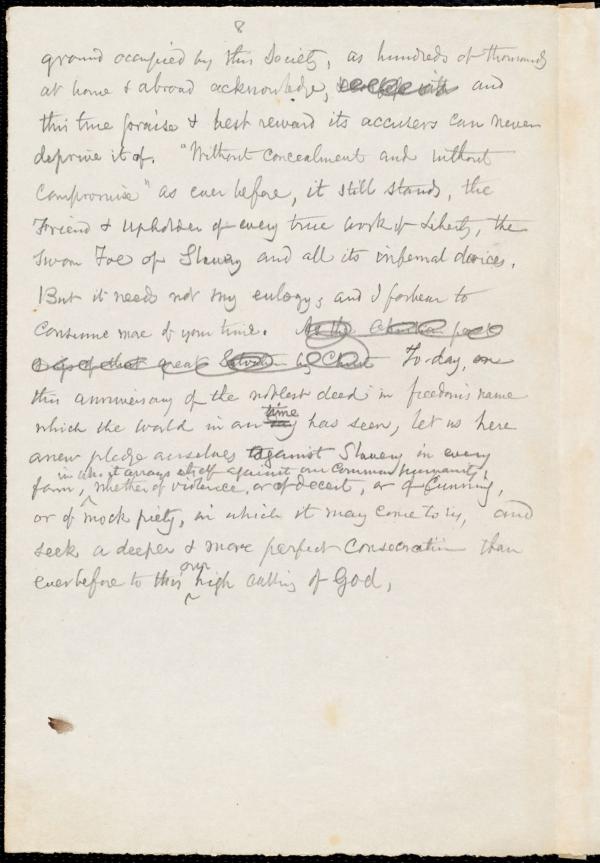 8
ground occupied by this Society, as hundreds of thousands
at home & abroad acknowledge, and
this true praise & best reward its accusers can never
deprive it of. "Without concealment and without
compromise" as ever before, it still stands, the
Friend & Upholder of every true work of Liberty, the
sworn Foe of Slavery and all its infernal devices.
But it needs not my eulogy; and I forbear to
consume more of your time. As the
of that great by Christ To-day, on
this anniversary of the noblest deed in freedom's name
time
which the world in any has seen, let us here
anew pledge ourselves against Slavery in every
in which it arrays itself against our common humanity,
form, whether of violence, or of deceit, or of Cunning,
or of mock piety, in which it may come to us, and
seek a deeper & more perfect Consecration than
our
ever before to this high calling of God.